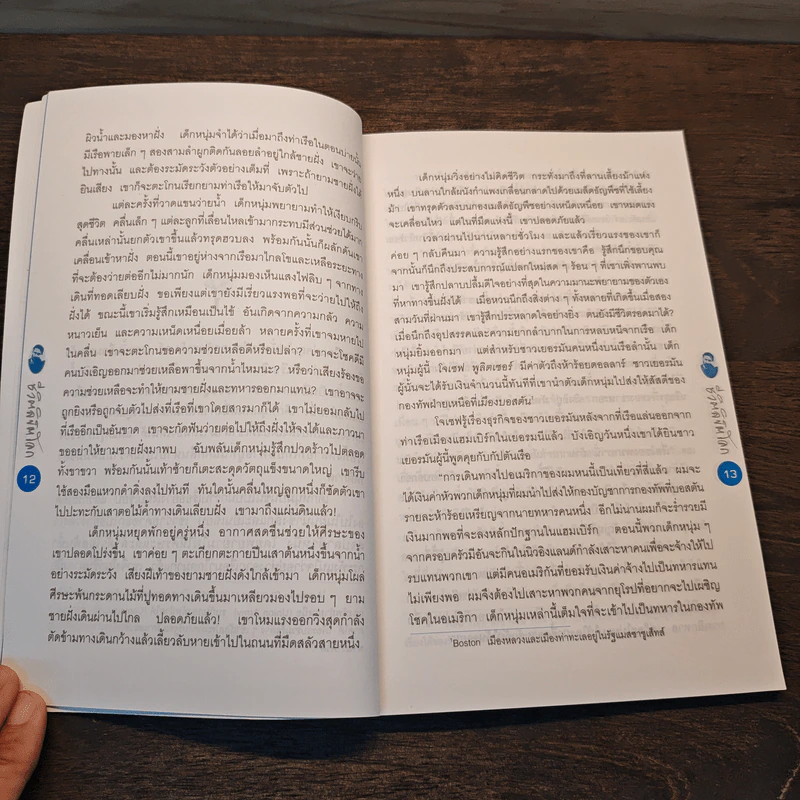 ผิวน้ำและมองหาฝั่ง เด็กหนุ่มจำได้ว่าเมื่อมาถึงท่าเรือในตอนบ่ายนั้น
มีเรือพายเล็ก ๆ สองสามลำผูกติดกันลอยลำอยู่ใกล้ชายฝั่ง เขาจะว่าย
ไปทางนั้น และต้องระมัดระวังตัวอย่างเต็มที่ เพราะถ้ายามชายฝั่งได้
ยินเสียง เขาก็จะตะโกนเรียกยามท่าเรือให้มาจับตัวไป
แต่ละครั้งที่วาดแขนว่ายน้ำ เด็กหนุ่มพยายามทำให้เงียบกริบ
สุดชีวิต คลื่นเล็ก ๆ แต่ละลูกที่เลื่อนไหลเข้ามากระทบมีส่วนช่วยได้มาก
คลื่นเหล่านั้นยกตัวเขาขึ้นแล้วทรุดฮวบลง พร้อมกันนั้นก็ผลักดันเขา
เคลื่อนเข้าหาฝั่ง ตอนนี้เขาอยู่ห่างจากเรือมาไกลโขและเหลือระยะทาง
ที่จะต้องว่ายต่ออีกไม่มากนัก เด็กหนุ่มมองเห็นแสงไฟลิบ ๆ จากทาง
เดินที่ทอดเลียบฝั่ง ขอเพียงแต่เขายังมีเรี่ยวแรงพอที่จะว่ายไปให้ถึง
ฝั่งได้ ขณะนี้เขาเริ่มรู้สึกเหมือนเป็นไข้ อันเกิดจากความกลัว ความ
หนาวเย็น และความเหนื่อยเมื่อยล้า หลายครั้งที่เขาจมหายไป
ในคลื่น เขาจะตะโกนขอความช่วยเหลือดีหรือเปล่า? เขาจะโชคดีมี
คนบังเอิญออกมาช่วยเหลือพาขึ้นจากน้ำไหมนะ? หรือว่าเสียงร้องขอ
ความช่วยเหลือจะทำให้ยามชายฝั่งและทหารออกมาแทน? เขาอาจจะ
ถูกยิงหรือถูกจับตัวไปส่งที่เรือที่เขาโดยสารมาก็ได้ เขาไม่ยอมกลับไป
ที่เรืออีกเป็นอันขาด เขาจะกัดฟันว่ายต่อไปให้ถึงฝั่งให้จงได้และภาวนา
ขออย่าให้ยามชายฝั่งมาพบ ฉับพลันเด็กหนุ่มรู้สึกปวดร้าวไปตลอด
ทั้งขาขวา พร้อมกันนั้นเท้าซ้ายก็เตะสะดุดวัตถุแข็งขนาดใหญ่ เขารีบ
ใช้สองมือแหวกดำดิ่งลงไปทันที ทันใดนั้นคลื่นใหญ่ลูกหนึ่งก็ซัดตัวเขา
ไปปะทะกับเสาตอไม้ค้ำทางเดินเลียบฝั่ง เขามาถึงแผ่นดินแล้ว!
เด็กหนุ่มหยุดพักอยู่ครู่หนึ่ง อากาศสดชื่นช่วยให้ศีรษะของ
เขาปลอดโปร่งขึ้น เขาค่อย ๆ ตะเกียกตะกายปีนเสาต้นหนึ่งขึ้นจากน้ำ
อย่างระมัดระวัง เสียงฝีเท้าของยามชายฝั่งดังใกล้เข้ามา เด็กหนุ่มโผล่
ศีรษะพ้นกระดานไม้ที่ปูทอดทางเดินขึ้นมาเหลียวมองไปรอบ ๆ ยาม
ชายฝั่งเดินผ่านไปไกล ปลอดภัยแล้ว! เขาโหมแรงออกวิ่งสุดกำลัง
ตัดข้ามทางเดินกว้างแล้วเลี้ยวลับหายเข้าไปในถนนที่มืดสลัวสายหนึ่ง
12
เด็กหนุ่มวิ่งอย่างไม่คิดชีวิต กระทั่งมาถึงที่ลานเลี้ยงม้าแห่ง
หนึ่ง บนลานใกล้ผนังกำแพงเกลื่อนกลาดไปด้วยเมล็ดธัญพืชที่ใช้เลี้ยง
ม้า เขาทรุดตัวลงบนกองเมล็ดธัญพืชอย่างเหน็ดเหนื่อย เขาหมดแรง
จะเคลื่อนไหว แต่ในที่มืดแห่งนี้ เขาปลอดภัยแล้ว
เวลาผ่านไปนานหลายชั่วโมง และแล้วเรี่ยวแรงของเขาก็
ค่อย ๆ กลับคืนมา ความรู้สึกอย่างแรกของเขาคือ รู้สึกนึกขอบคุณ
จากนั้นก็นึกถึงประสบการณ์แปลกใหม่สด ๆ ร้อน ๆ ที่เขาเพิ่งพานพบ
มา เขารู้สึกปลาบปลื้มดีใจอย่างที่สุดในความมานะพยายามของตัวเอง
ที่หาทางขึ้นฝั่งได้ เมื่อหวนนึกถึงสิ่งต่าง ๆ ทั้งหลายที่เกิดขึ้นเมื่อสอง
สามวันที่ผ่านมา เขารู้สึกประหลาดใจอย่างยิ่ง ตนยังมีชีวิตรอดมาได้?
เมื่อนึกถึงอุปสรรคและความยากลำบากในการหลบหนีจากเรือ เด็ก
หนุ่มยิ้มออกมา แต่สำหรับชาวเยอรมันคนหนึ่งบนเรือลำนั้น เด็ก
หนุ่มผู้นี้ โจเซฟ พูลิตเซอร์ มีค่าตัวถึงห้าร้อยดอลลาร์ ชาวเยอรมัน
ผู้นั้นจะได้รับเงินจำนวนนี้ทันทีที่เขานำตัวเด็กหนุ่มไปส่งให้สัสดีของ
กองทัพฝ่ายเหนือที่เมืองบอสตัน¹
โจเซฟรู้เรื่องธุรกิจของชาวเยอรมันหลังจากที่เรือแล่นออกจาก
ท่าเรือเมืองแฮมเบิร์กในเยอรมนีแล้ว บังเอิญวันหนึ่งเขาได้ยินชาว
เยอรมันผู้นี้พูดคุยกับกัปตันเรือ
"การเดินทางไปอเมริกาของผมหนนี้เป็นเที่ยวที่สี่แล้ว ผมจะ
ได้เงินค่าหัวพวกเด็กหนุ่มที่ผมนำไปส่งให้กองบัญชาการกองทัพที่บอสตัน
รายละห้าร้อยเหรียญจากนายทหารคนหนึ่ง อีกไม่นานผมก็จะร่ำรวยมี
เงินมากพอที่จะลงหลักปักฐานในแฮมเบิร์ก ตอนนี้พวกเด็กหนุ่ม ๆ
จากครอบครัวมีอันจะกินในนิวอิงแลนด์กำลังเสาะหาคนเพื่อจะจ้างให้ไป
รบแทนพวกเขา แต่มีคนอเมริกันที่ยอมรับเงินค่าจ้างไปเป็นทหารแทน
ไม่เพียงพอ ผมจึงต้องไปเสาะหาพวกคนจากยุโรปที่อยากจะไปเผชิญ
โชคในอเมริกา เด็กหนุ่มเหล่านี้เต็มใจที่จะเข้าไปเป็นทหารในกองทัพ
¹Boston เมืองหลวงและเมืองท่าทะเลอยู่ในรัฐแมสซาชูเส็ทส์
13